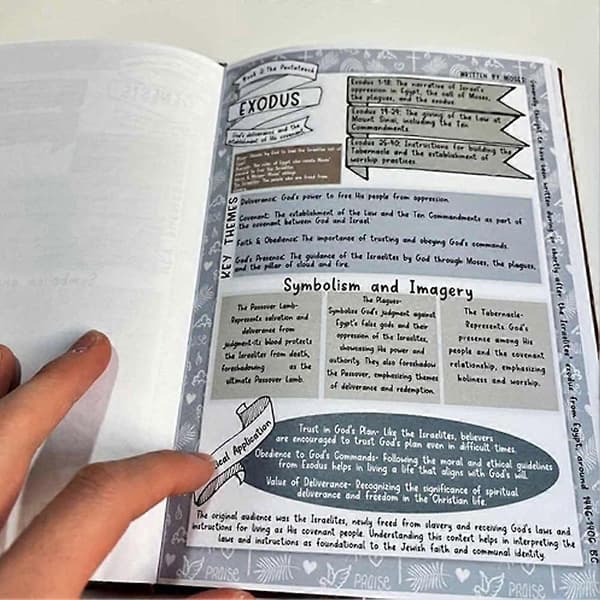 Book 2: The Pentateuch
WRITTEN BY MOSES
EXODUS
God's deliverance and the
establishment of His covenant
Exodus 1-18: The narrative of Israel's
oppression in Egypt, the call of Moses,
the plagues, and the exodus
Exodus 19-24: The giving of the Law at
Mount Sinai, including the Ten
Commandments.
Exodus 25-40: Instructions for building the
Tabernacle and the establishment of
worship practices.
by God to lead the Israelites out of
The ruler of Egypt who
The people who are freed from
KEY THEMES
Deliverance: God's power to free His people from oppression.
Covenant: The establishment of the Law and the Ten Commandments as part of
the covenant between God and Israel.
Faith & Obedience: The importance of trusting and obeying God's commands.
God's Presence: The guidance of the Israelites by God through Moses, the plagues,
and the pillar of cloud and fire.
Symbolism and Imagery
The Passover Lamb-
Represents salvation and
deliverance from
judgment-its blood protects
the Israelites from death,
foreshadowing as the
ultimate Passover Lamb.
The Plagues-
Symbolize God's judgment against
Egypt's false gods and their
oppression of the Israelites,
showcasing His power and
authority. They also foreshadow
the Passover, emphasizing themes
of deliverance and redemption.
The Tabernacle-
Represents God's
presence among His
people and the covenant
relationship, emphasizing
holiness and worship.
Application
Trust in God's Plan- Like the Israelites, believers
are encouraged to trust God's plan even in difficult times.
Obedience to God's Commands- Following the moral and ethical guidelines
from Exodus helps in living a life that aligns with God's will.
Value of Deliverance- Recognizing the significance of spiritual
deliverance and freedom in the Christian life.
The original audience was the Israelites, newly freed from slavery and receiving God's laws and
instructions for living as His covenant people. Understanding this context helps in interpreting the
laws and instructions as foundational to the Jewish faith and communal identity.
Generally thought to have been written during or shortly after the Israelites' exodus from Egypt, around 1446-1406 BC
PRAISE
PRAISE
PRAISE